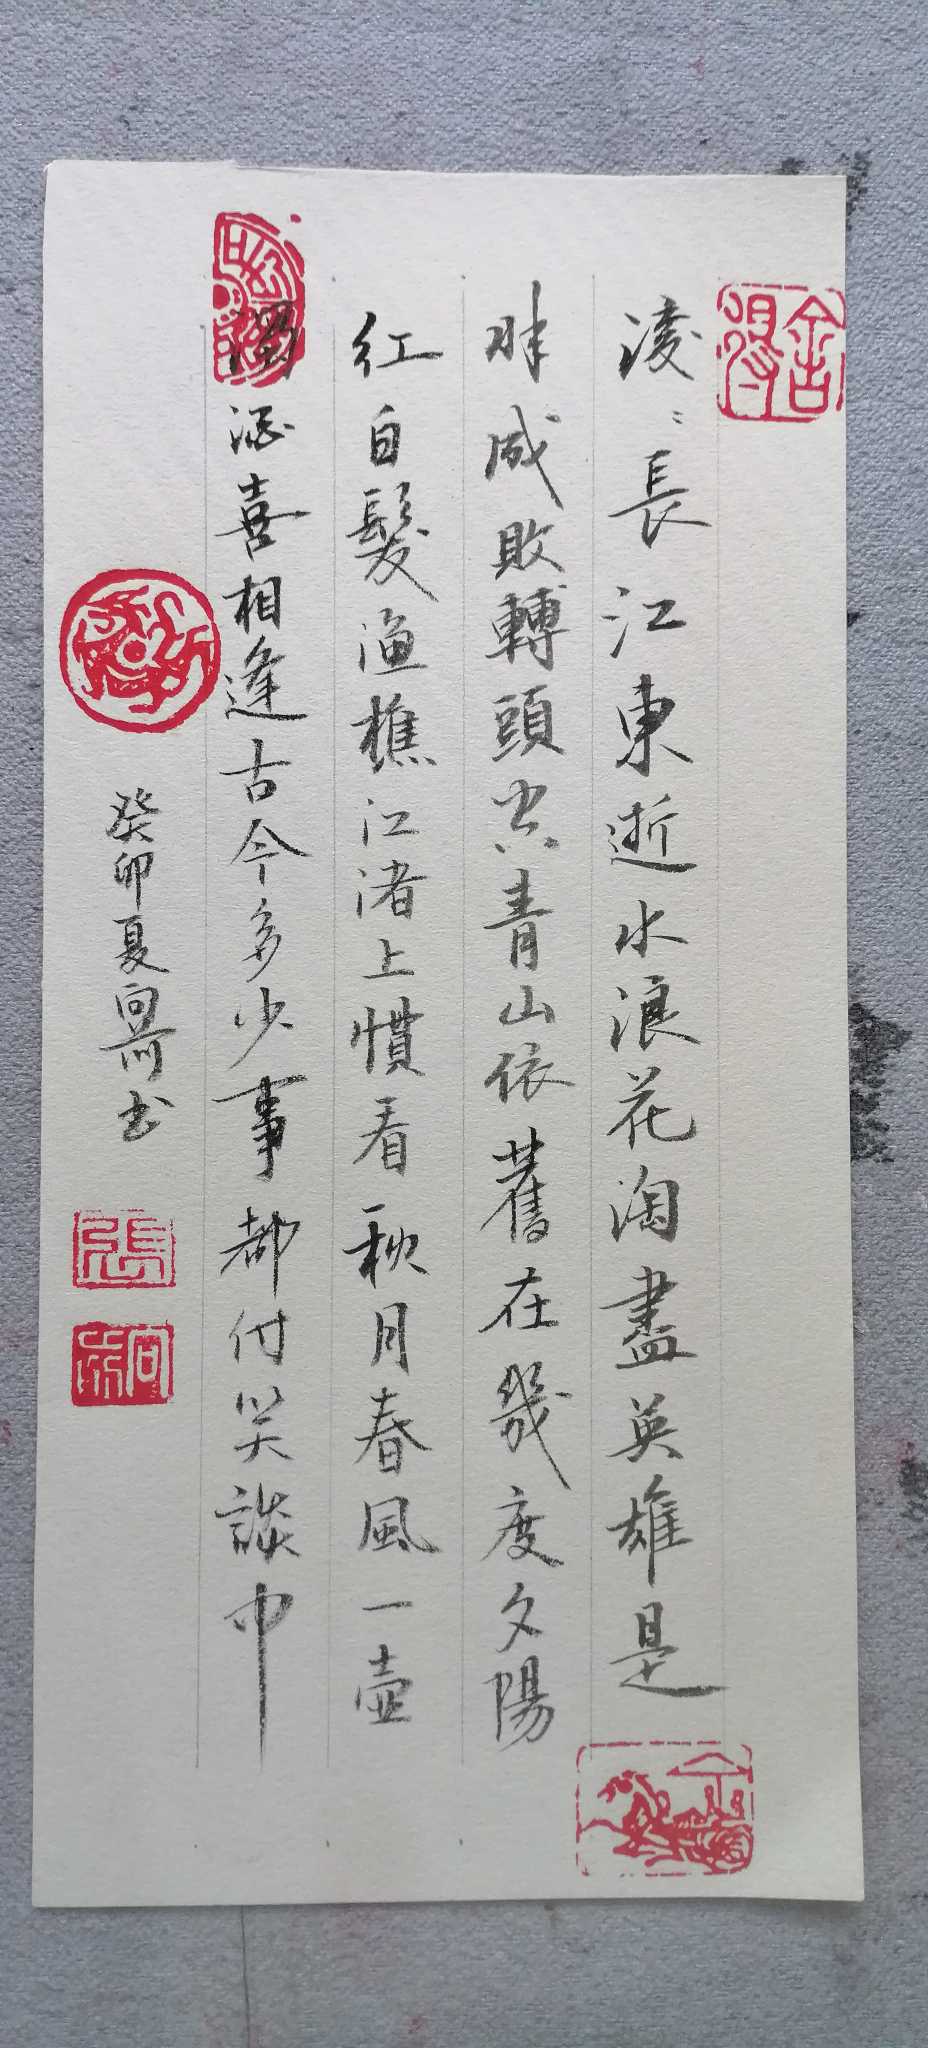 舍得
滚〻長江東逝水浪花淘盡英雄是
非成敗轉頭空青山依舊在幾度夕陽
紅白髮渔樵江渚上慣看秋月春風一壺
濁酒喜相逢古今多少事都付笑談中
癸卯夏向书
張
向